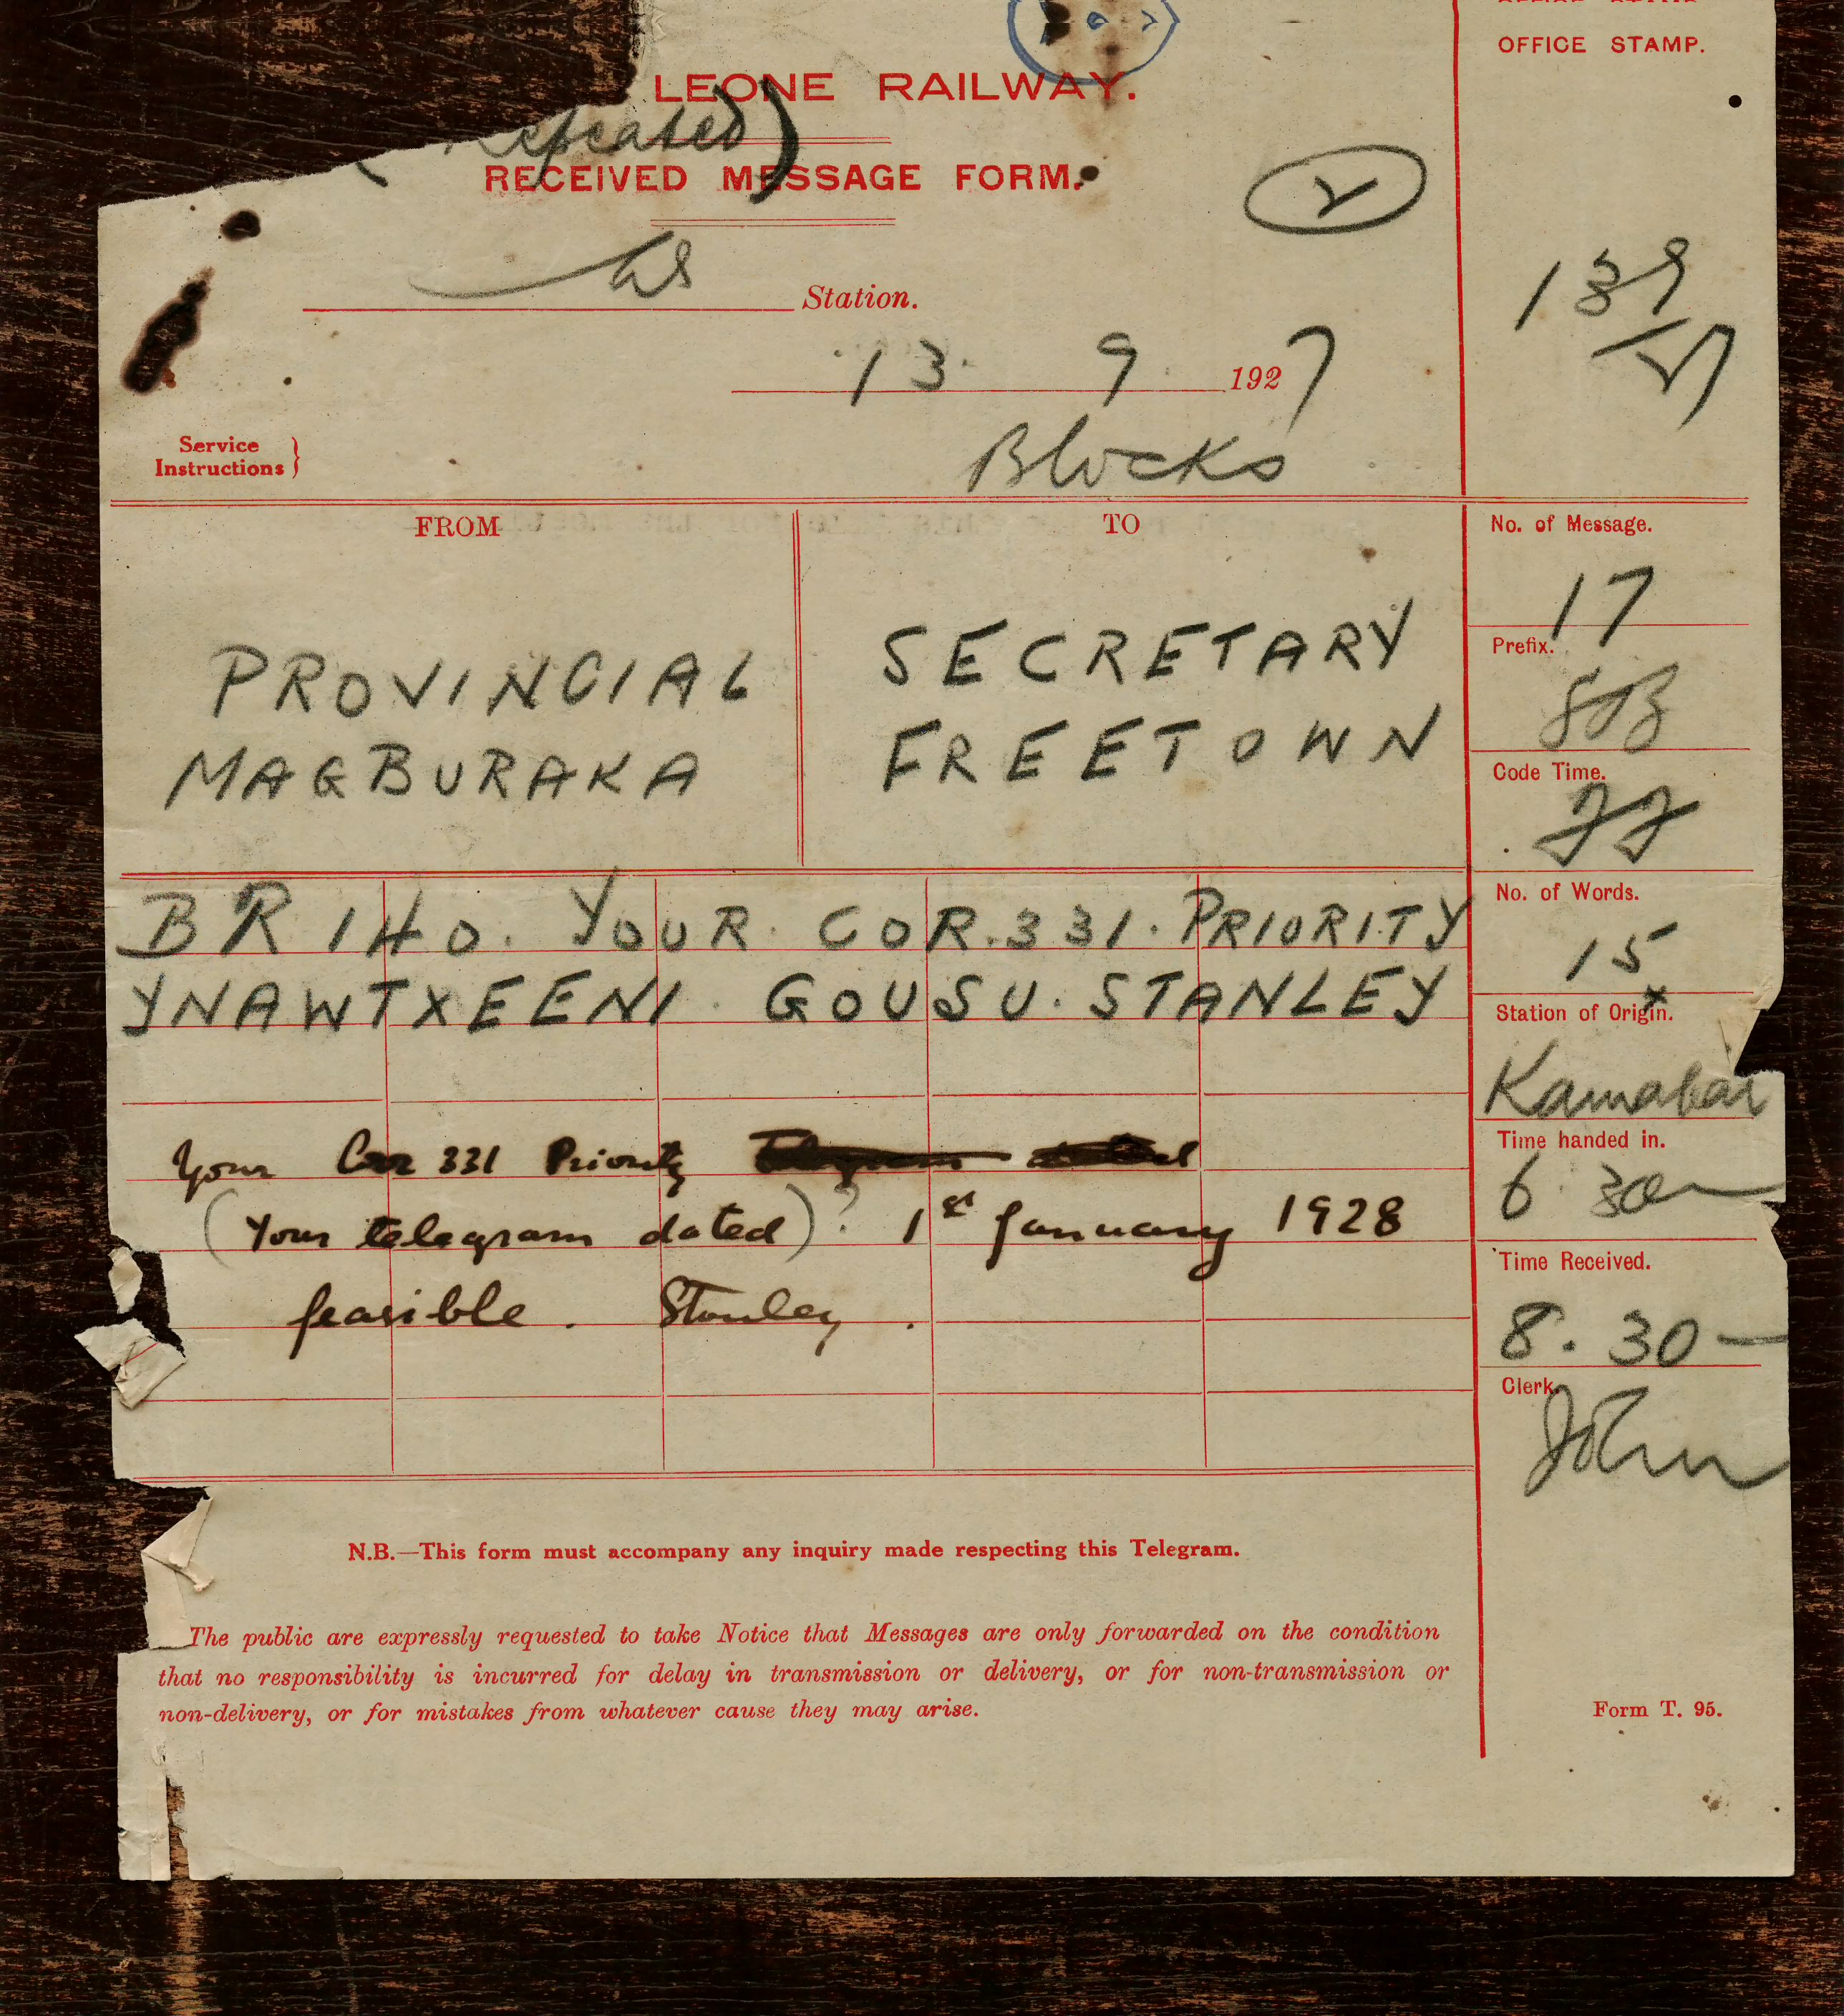 OFFICE STAMP.
LEONE RAILWAY.
Repeated)
RECEIVED MESSAGE FORM.
Station.
13. 9. 1927
139
Blocks
Service
Instructions }
FROM
TO
No. of Message.
17
PROVINCIAL
MAGBURAKA
SECRETARY
FREETOWN
Prefix.
Code Time.
BR 140. YOUR. COR. 331. PRIORITY
YNAWTXEENI. GOUSU. STANLEY
No. of Words.
15
Station of Origin.
Kamabai
Your Cor 331 Priority
(Your telegram dated)? 1st January 1928
feasible. Stanley.
Time handed in.
6.30
Time Received.
8.30—
Clerk
John
N.B.—This form must accompany any inquiry made respecting this Telegram.
The public are expressly requested to take Notice that Messages are only forwarded on the condition
that no responsibility is incurred for delay in transmission or delivery, or for non-transmission or
non-delivery, or for mistakes from whatever cause they may arise.
Form T. 95.